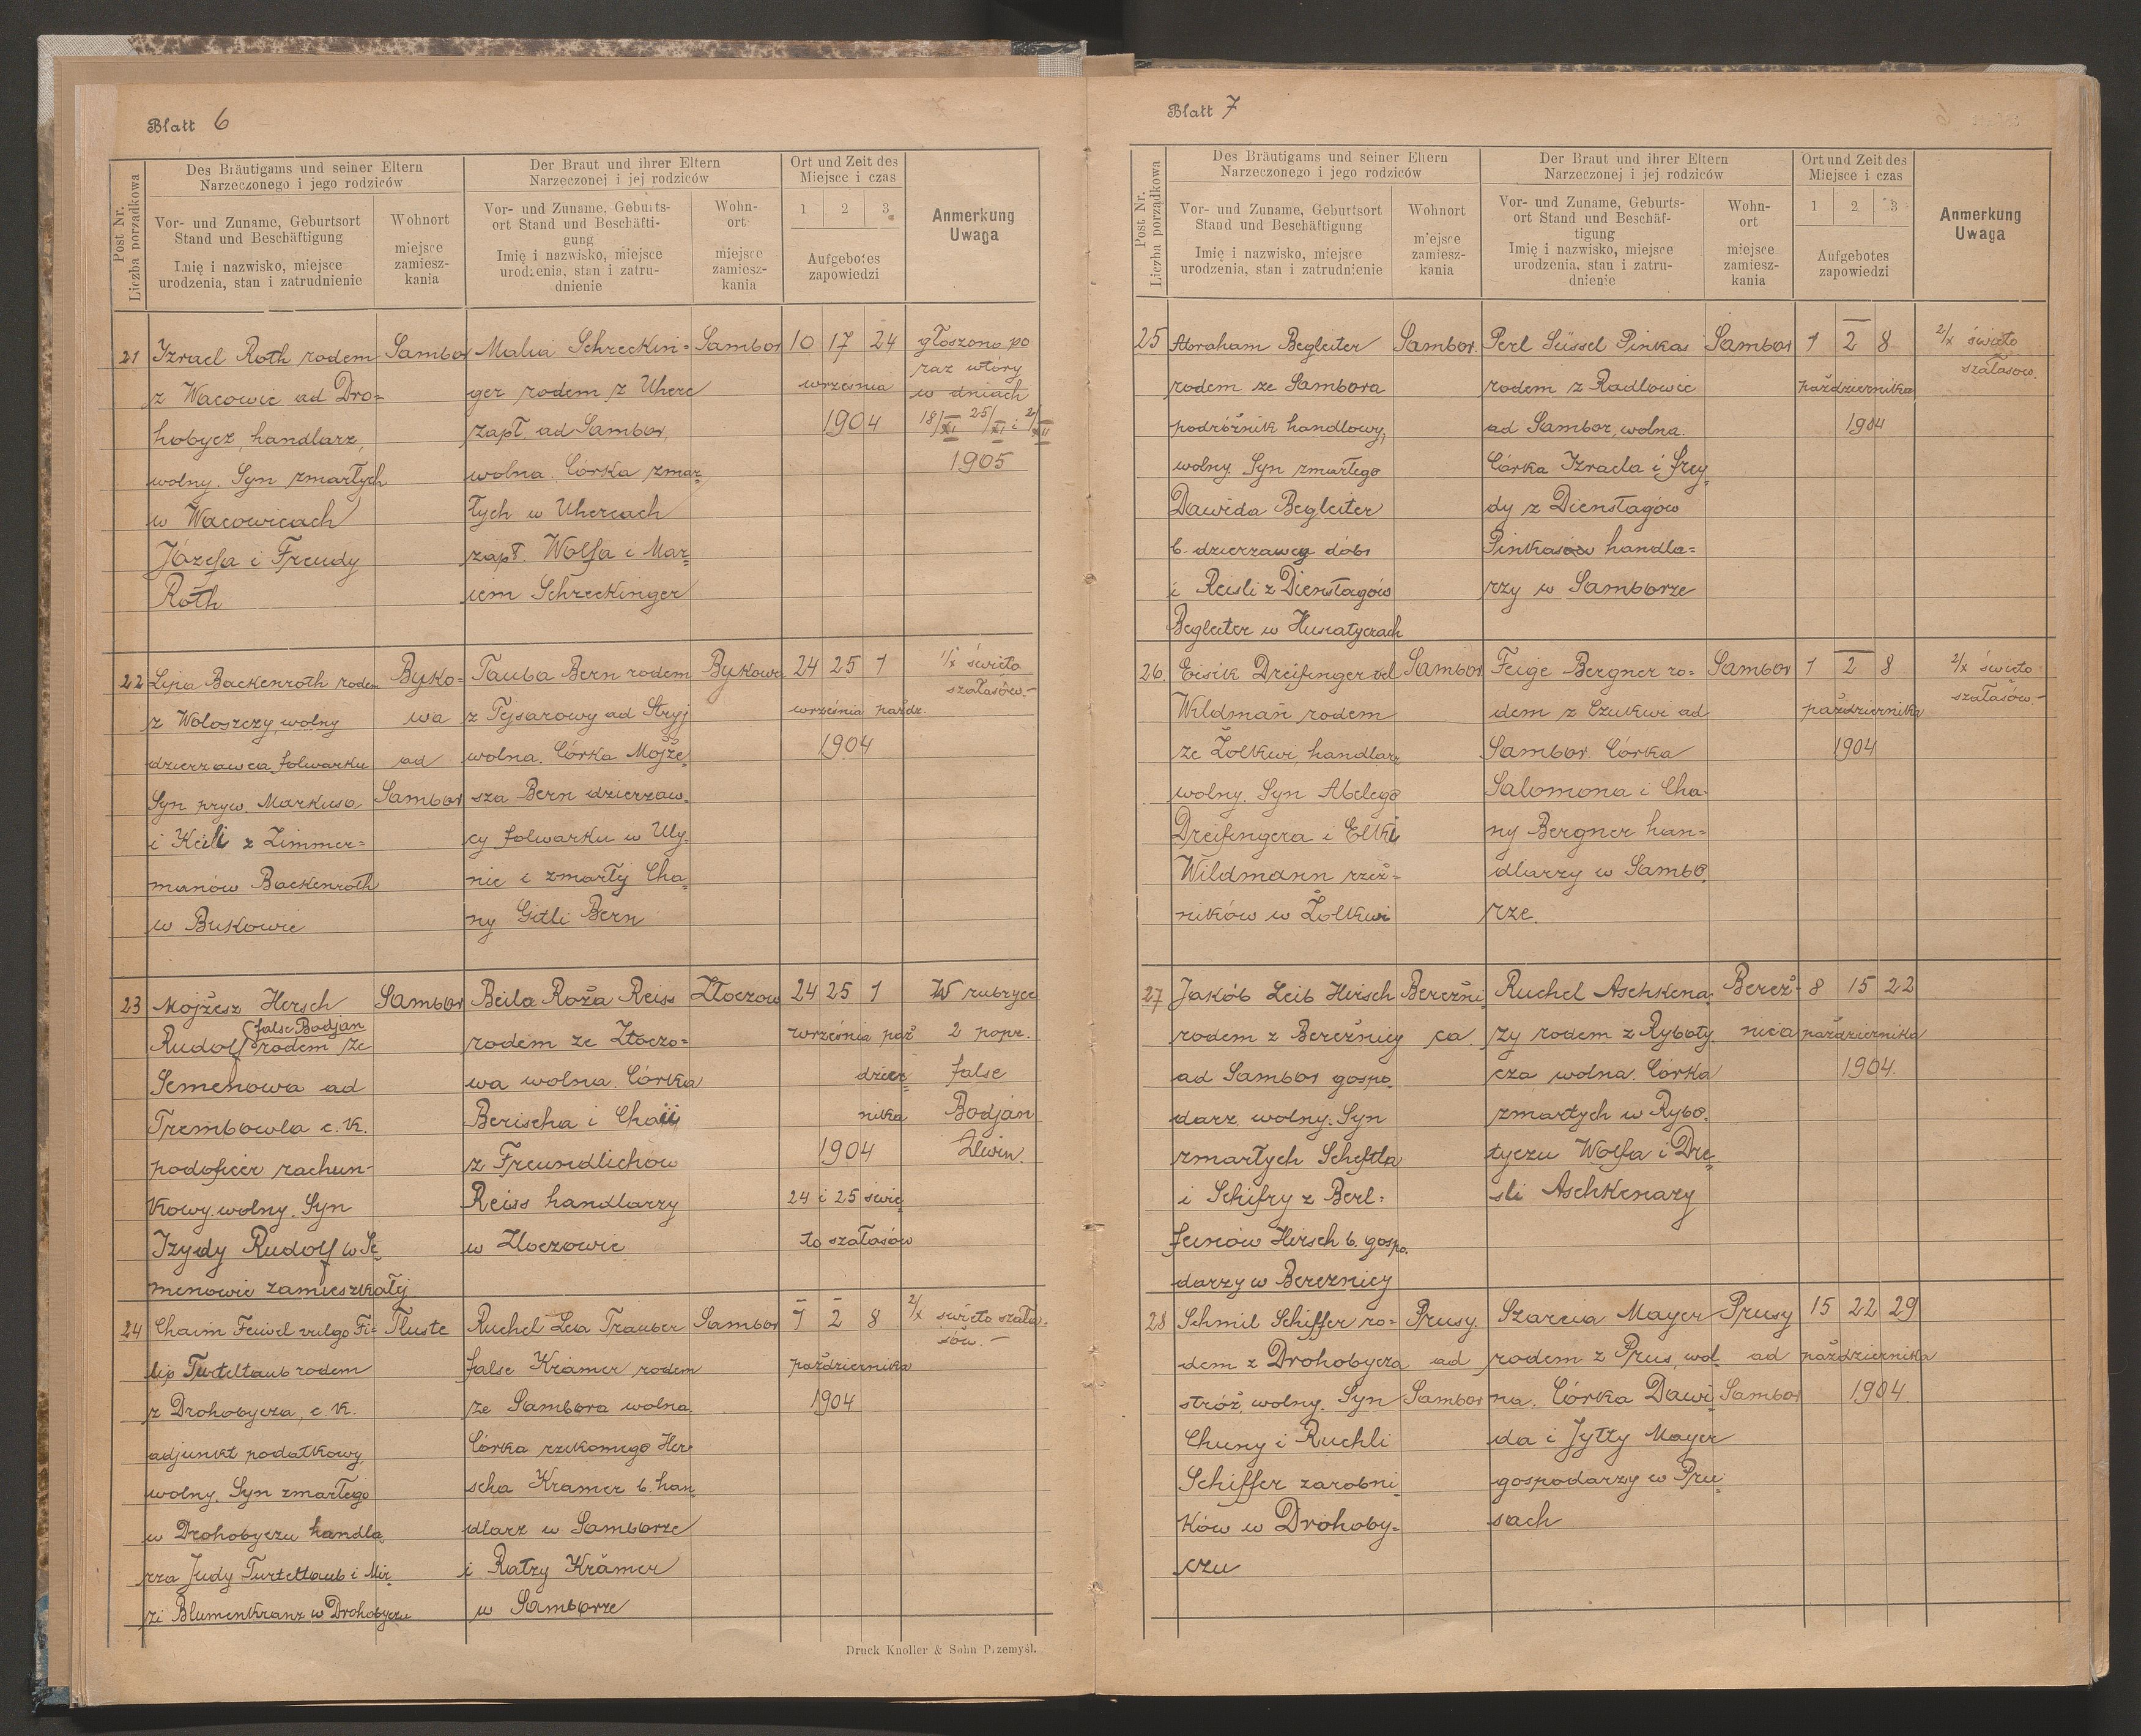 Blatt 6
Post Nr.
Liczba porządkowa
Des Bräutigams und seiner Eltern
Narzeczonego i jego rodziców
Vor- und Zuname, Geburtsort
Stand und Beschäftigung
Imię i nazwisko, miejsce
urodzenia, stan i zatrudnienie
Wohnort
miejsce
zamiesz-
kania
Der Braut und ihrer Eltern
Narzeczonej i jej rodziców
Vor- und Zuname, Geburts-
ort Stand und Beschäfti-
gung
Imię i nazwisko, miejsce
urodzenia, stan i zatru-
dnienie
Wohn-
ort
miejsce
zamiesz-
kania
Ort und Zeit des
Miejsce i czas
1 2 3
Aufgebotes
zapowiedzi
Anmerkung
Uwaga
21
Izrael Roth rodem
z Wacowic ad Dro=
hobycz, handlarz,
wolny. Syn zmarłych
w Wacowicach
Józefa i Freudy
Roth
Sambor
Malia Schreckin=
ger rodem z Uherc
zapł. ad Sambor,
wolna. Córka zmar=
łych w Uhercach
zapł. Wolfa i Mar=
iem Schreckinger
Sambor
10 17 24
września
1904
głoszono po
raz wtóry
w dniach
18/XI 25/XI i 2/XII
1905
22
Lipa Backenroth rodem
z Woloszczy, wolny
dzierzawca folwarku
Syn pryw. Markusa
i Keili z Zimmer=
manów Backenroth
w Bukowie
Byko=
wa
ad
Sambor
Tauba Bern rodem
z Tejsarowy ad Stryj
wolna. Córka Mojże=
sza Bern dzierzaw=
cy folwarku w Uly=
nic i zmarłj Cha=
ny Gitli Bern
Bykowa
24 25 1
września paźdz.
1904
1/X święto
szałasów.-
23
Mojżesz Hersch
Rudolf false Bodjan
rodem ze
Semenowa ad
Trembowla c. k.
podoficer rachun-
kowy. wolny. Syn
Izydy Rudolf w Se=
menowie zamieszkałej
Sambor
Beila Roża Reiss
rodem ze Złoczo=
wa wolna. Córka
Berischa i Chaii
z Freundlichów
Reiss handlarzy
w Zloczowie
Złoczow
24 25 1
września paź
dzier=
nika
1904
24 i 25 świę=
to szałasów
W rubryce
2 popr.
false
Bodján
24
Chaim Feiwel vulgo Fi=
lip Turteltaub rodem
z Drohobycza, c. k.
adjunkt podatkowy,
wolny. Syn zmarłego
w Drohobyczu handla=
rza Judy Turteltaub i Mir=
zi Blumenkranz w Drohobyczu
Tluste
Ruchel Lea Trauber
false Krämer rodem
ze Sambora wolna.
Córka rzekomego Her=
scha Kramer b. han=
dlarz w Samborze
i Ratzy Krämer
w Samborze
Sambor
1 2 8
października
1904
2/X święto szała=
sów.-
Druck Knoller & Sohn Przemyśl.
Blatt 7
Post Nr.
Liczba porządkowa
Des Bräutigams und seiner Eltern
Narzeczonego i jego rodziców
Vor- und Zuname, Geburtsort
Stand und Beschäftigung
Imię i nazwisko, miejsce
urodzenia, stan i zatrudnienie
Wohnort
miejsce
zamiesz-
kania
Der Braut und ihrer Eltern
Narzeczonej i jej rodziców
Vor- und Zuname, Geburts-
ort Stand und Beschäf-
tigung
Imię i nazwisko, miejsce
urodzenia, stan i zatru-
dnienie
Wohn-
ort
miejsce
zamiesz-
kania
Ort und Zeit des
Miejsce i czas
1 2 3
Aufgebotes
zapowiedzi
Anmerkung
Uwaga
25
Abraham Begleiter
rodem ze Sambora
podróżnik handlowy,
wolny. Syn zmarłego
Dawida Begleiter
b. dzierzawcy dóbr
i Reisli z Dienstagów
Begleiter w Husiatyczach
Sambor.
Perl Süssel Pinkas
rodem z Radlowic
ad Sambor, wolna.
Córka Izraela i Frey=
dy z Dienstagów
Pinkasów handla=
rzy w Samborze
Sambor
1 2 8
października
1904
2/X święto
szałasów.
26.
Eisik Dreifinger vel
Wildman rodem
ze Żolkwi, handlarz
wolny. Syn Abelego
Dreifingera i Elki
Wildmann rzeź=
ników w Żolkwi
Sambor
Feige Bergner ro=
dem z Czukwi ad
Sambor. Córka
Salomona i Cha=
ny Bergner han=
dlarzy w Sambo=
rze.
Sambor
1 2 8
października
1904
2/X święto
szałasów.-
27
Jakób Leib Hirsch
rodem z Bereżnicy
ad Sambor gospo=
darz. wolny. Syn
zmarłych Scheftla
i Schifry z Berl=
feinów Hirsch b. gospo=
darzy w Bereznicy
Bereżni=
ca.
Ruchel Aschkena=
zy rodem z Ryboty=
cza wolna. Córka
zmarłych w Rybo=
tyczu Wolfa i Dre=
sli Aschkenazy
Bereż=
nica
8 15 22
października
1904.
28
Schmil Schiffer ro=
dem z Drohobycza
stróż, wolny. Syn
Chuny i Ruchli
Schiffer zarobni=
ków w Drohoby=
czu
Prusy.
ad
Sambor
Szarcia Mayer
rodem z Prus, wol=
na. Córka Dawi=
da i Jytty Mayer
gospodarzy w Pru=
sach
Prusy
ad
Sambor
15 22 29
października
1904.